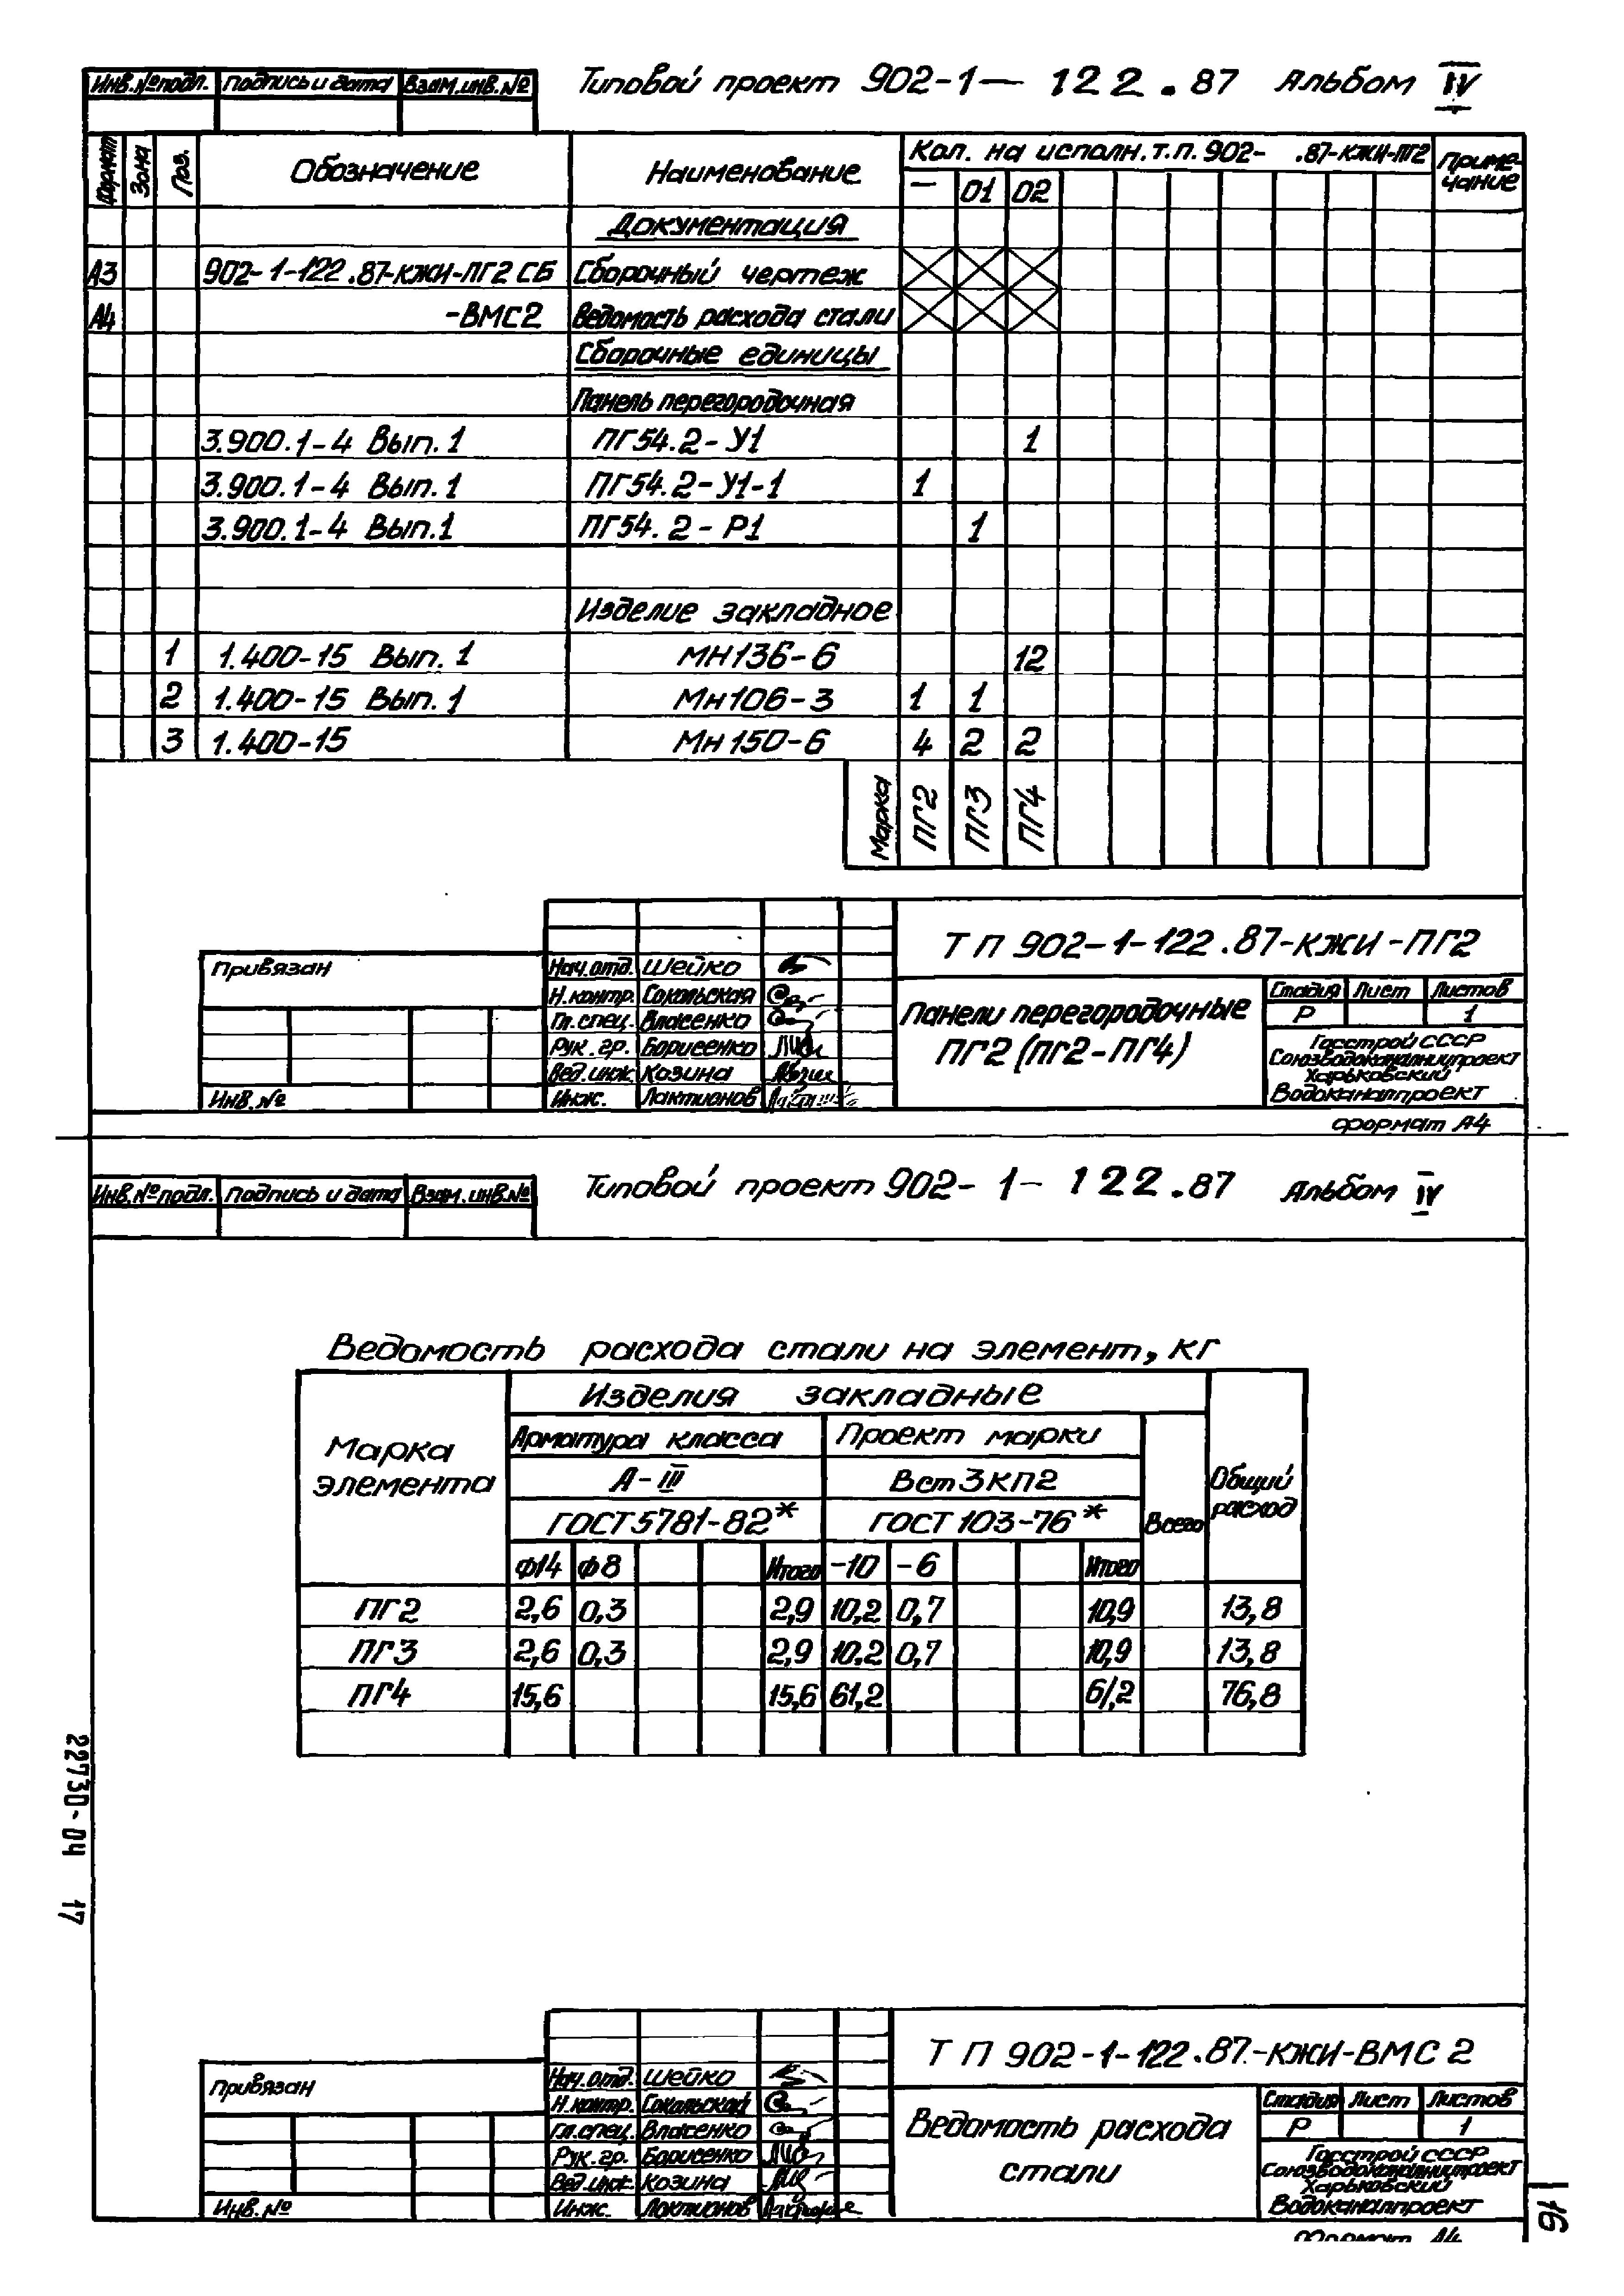 Инв.№ подл. Подпись и дата Взам.инв.№ Типовой проект 902-1-122.87 Альбом IV
Формат Зона Поз. Обозначение Наименование Кол. на исполн. т.п. 902- .87-КЖИ-ПГ2 Примечание
— 01 02
Документация
А3 902-1-122.87-КЖИ-ПГ2 СБ Сборочный чертеж
А4 -ВМС2 Ведомость расхода стали
Сборочные единицы
Панель перегородочная
3.900.1-4 Вып.1 ПГ54.2-У1 1
3.900.1-4 Вып.1 ПГ54.2-У1-1 1
3.900.1-4 Вып.1 ПГ54.2-Р1 1
Изделие закладное
1 1.400-15 Вып.1 МН136-6 12
2 1.400-15 Вып.1 Мн106-3 1 1
3 1.400-15 Мн150-6 4 2 2
Марка ПГ2 ПГ3 ПГ4
ТП 902-1-122.87-КЖИ-ПГ2
Привязан
Нач.отд. Шейко
Н.контр. Сокольская
Гл.спец. Власенко
Рук.гр. Борисенко
Вед.инж. Козина
Инж. Лактионов
Инв.№
Панели перегородочные
ПГ2 (ПГ2-ПГ4)
Стадия Лист Листов
Р 1
Госстрой СССР
Союзводоканалниипроект
Харьковский
Водоканалпроект
Формат А4
Инв.№ подл. Подпись и дата Взам.инв.№ Типовой проект 902-1-122.87 Альбом IV
Ведомость расхода стали на элемент, кг
Марка элемента
Изделия закладные
Арматура класса Проект марки
А-III Вст3кп2
ГОСТ 5781-82* ГОСТ 103-76* Всего Общий расход
Ф14 Ф8 Итого -10 -6 Итого
ПГ2 2,6 0,3 2,9 10,2 0,7 10,9 13,8
ПГ3 2,6 0,3 2,9 10.2 0,7 10,9 13,8
ПГ4 15,6 15,6 61,2 61,2 76,8
22730-04 17
ТП 902-1-122.87-КЖИ-ВМС2
Привязан
Нач.отд. Шейко
Н.контр. Сокольская
Гл.спец. Власенко
Рук.гр. Борисенко
Вед.инж. Козина
Инж. Лактионов
Инв.№
Ведомость расхода
стали
Стадия Лист Листов
Р 1
Госстрой СССР
Союзводоканалниипроект
Харьковский
Водоканалпроект
Формат А4
16